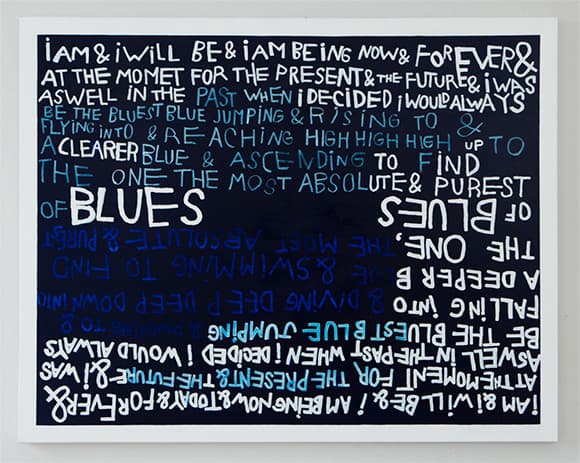 iAM & iWiLL BE & iAM BEiNG NOW & FOREVER &
AT THE MOMET FOR THE PRESENT & THE FUTURE & i WAS
ASWELL iN THE PAST WHEN i DECiDED i WOULD ALWAYS
BE THE BLUEST BLUE JUMPiNG & RiSiNG TO &
FLYiNG iNTO & REACHiNG HIGH HIGH HIGH UP TO
A CLEARER BLUE & ASCENDiNG TO FiND
THE ONE THE MOST ABSOLUTE & PUREST
OF BLUES
i AM & i WiLL BE & i AM BEiNG NOW & TODAY & FOREVER &
AT THE MOMENT FOR THE PRESENT & THE FUTURE & i WAS
ASWELL iN THE PAST WHEN i DECiDED i WOULD ALWAYS
BE THE BLUEST BLUE JUMPiNG & TO &
FALLiNG iNTO & DiViNG DEEP DEEP DOWN iNTO
A DEEPER BLUE & SWiMMiNG TO FiND
THE ONE, THE MOST ABSOLUTE & PUREST
OF BLUES